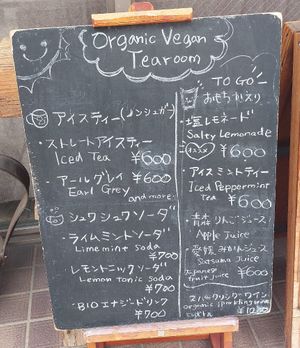 Organic Vegan
Tearoom
アイスティー(ノンシュガー)
・ストレートアイスティー
Iced Tea ¥600
・アールグレイ ¥600
Earl Grey
and more
シュワシュワソーダ
・ライムミントソーダ
Lime mint soda ¥700
レモントニックソーダ
・Lemon tonic soda ¥700
・BIOエナジードリンク
¥700
TO GO
おもちかえり
・塩レモネード
Salty Lemonade
¥600
・アイスミントティー
Iced Peppermint
Tea ¥600
・青森りんごジュース
Apple Juice
・愛媛みかんジュース
Satsuma Juice
Japanese
fruit juice ¥600
organic sparkling